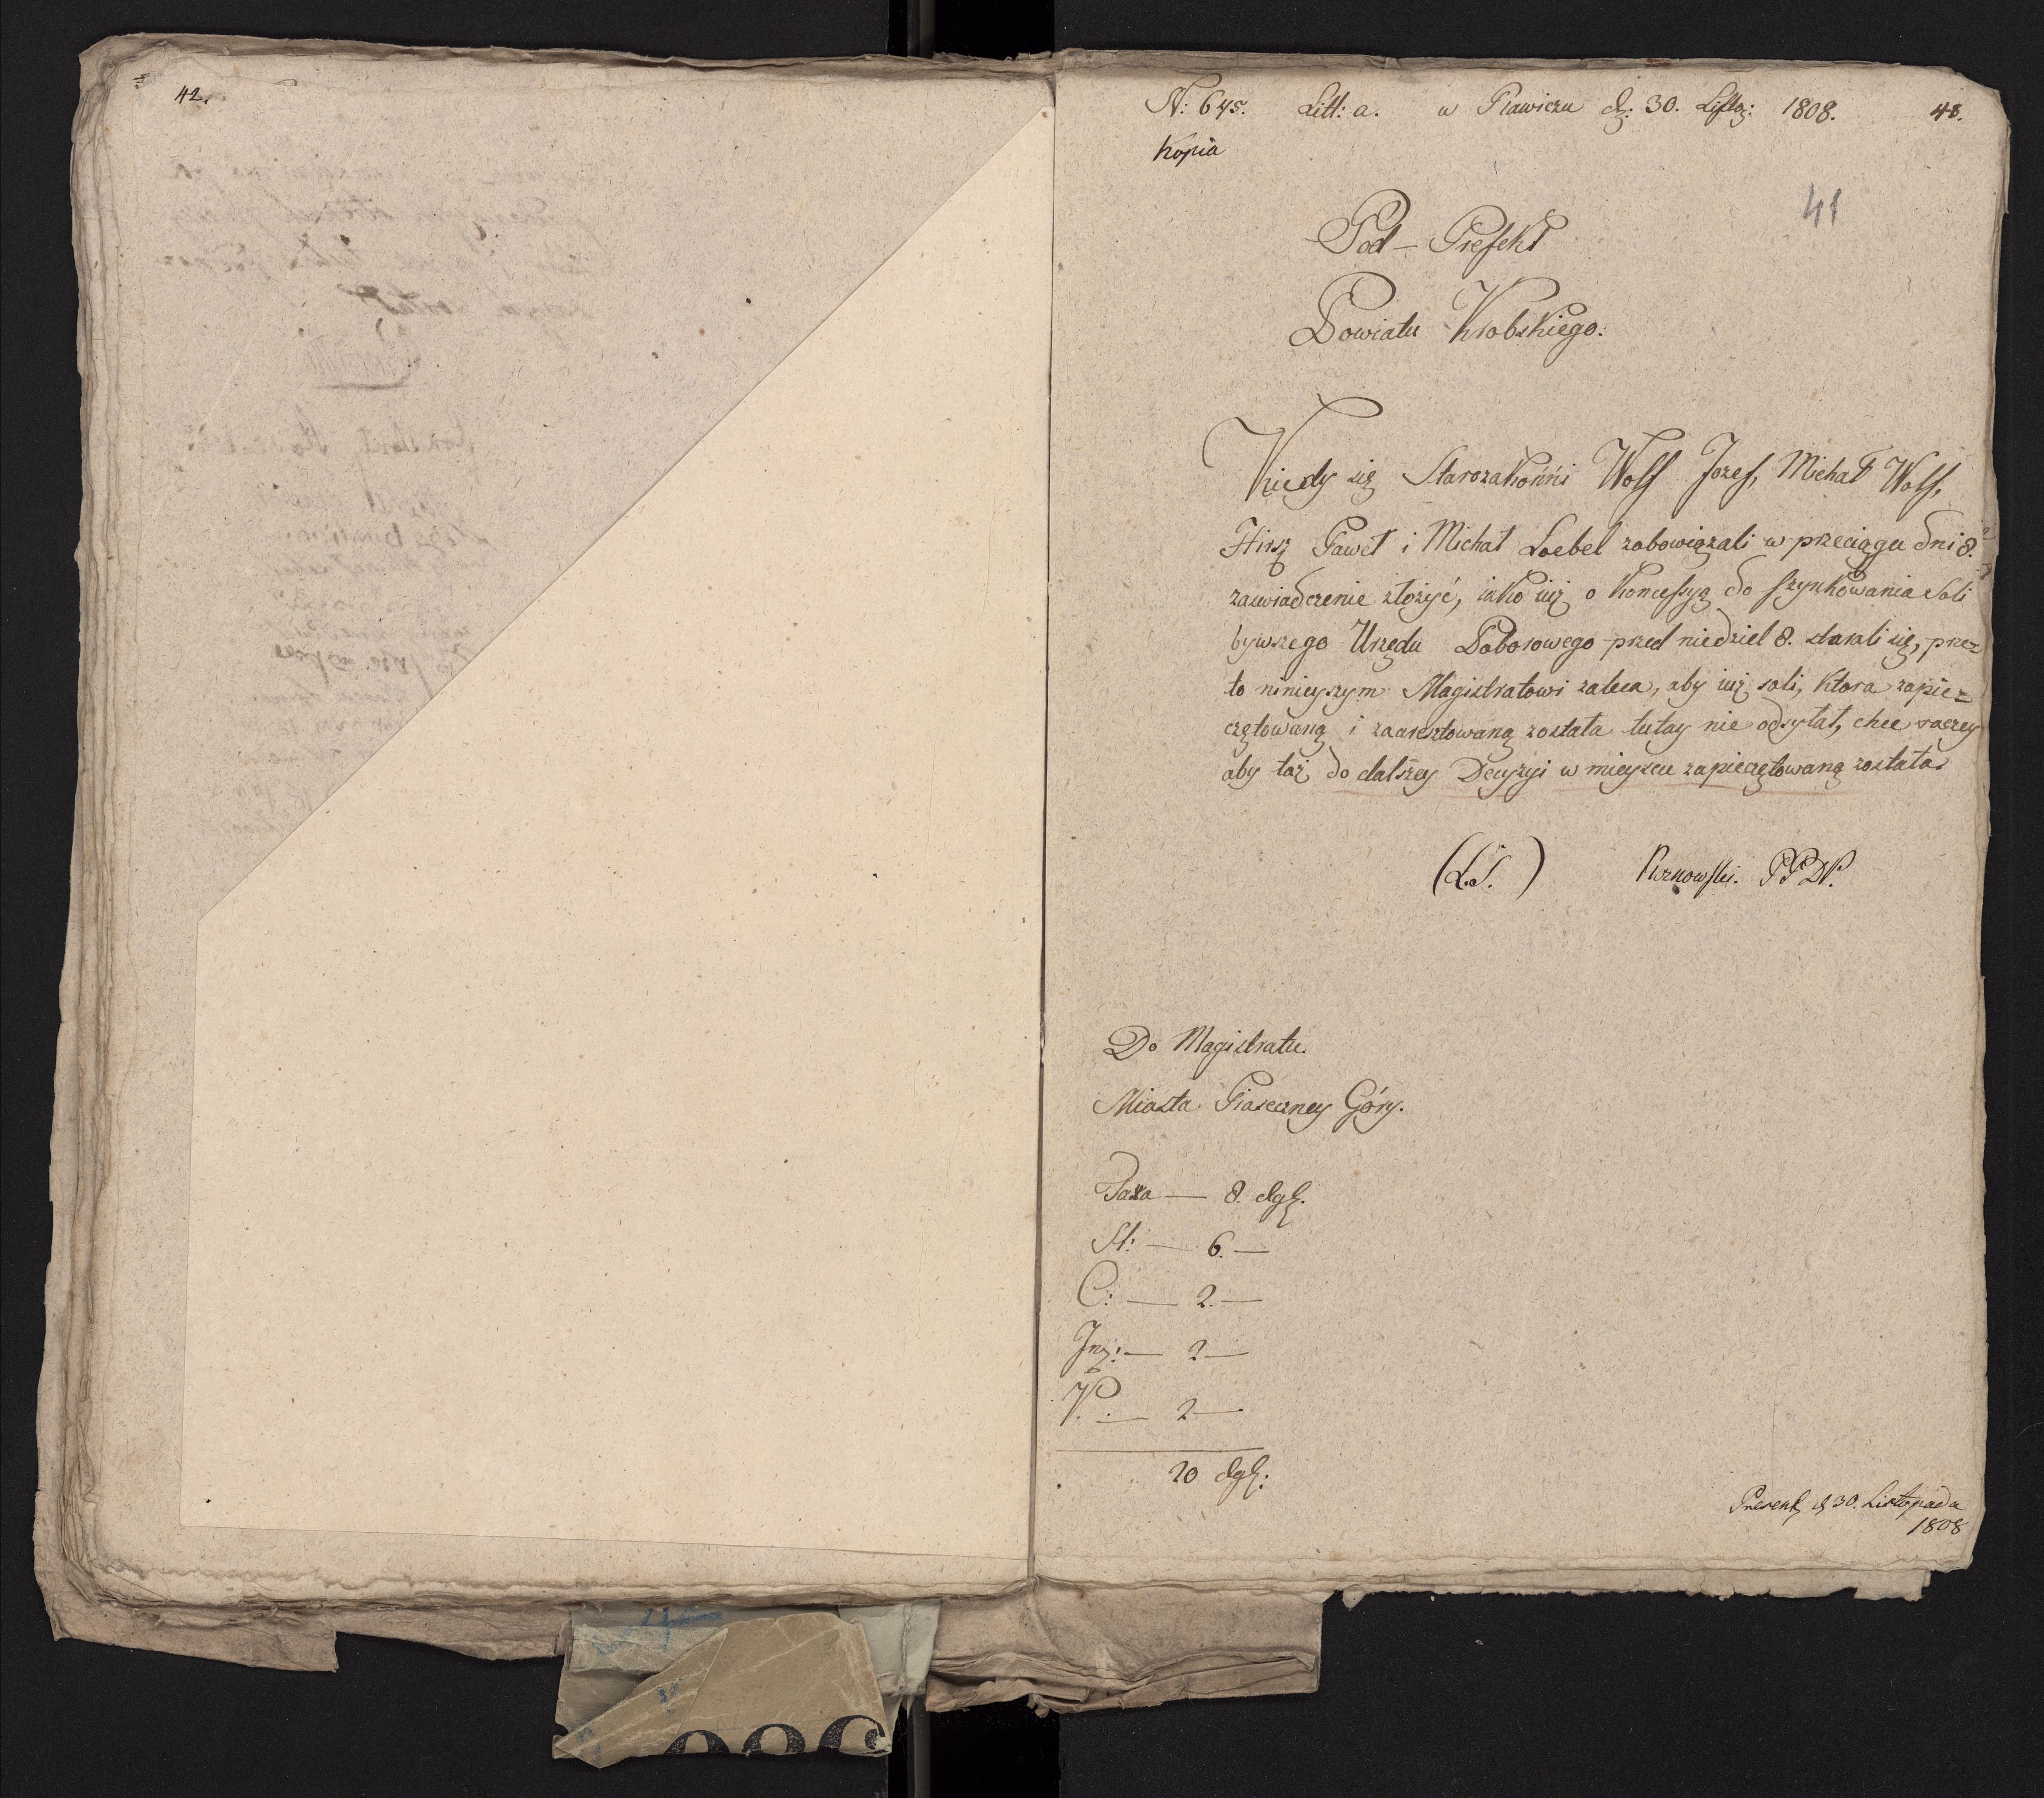 42.
N: 645. Litt: a. w Rawiczu d: 30. Listo: 1808. 43.
Kopia
41
Pod-Prefekt
Powiatu Krobskiego:
Kiedy się Starozakonni Wolf Jozef, Michał Wolf,
Hirsz Paweł i Michał Loebel zobowiązali w przeciągu dni 8.
zaswiadczenie złożyć, iako iuż o Koncessyą do szynkowania Soli
bywszego Urzędu Poborowego przed niedziel 8. starali się, prze=
to ninieyszym Magistratowi zaleca, aby iuż soli, ktora zapie=
czętowaną i zaaresztowaną została tutay nie odsyłał, chce raczey
aby taż do dalszey Decyzyi w mieyscu zapieczętowaną została.
(L.S.) PPDP.
Do Magistratu
Miasta Piaseczney Góry.
Taxa — 8. dgl.
St: — 6. —
C: — 2. —
Ins: — 2 —
V. — 2 —
20 dgl:
Present d 30. Listopada
1808